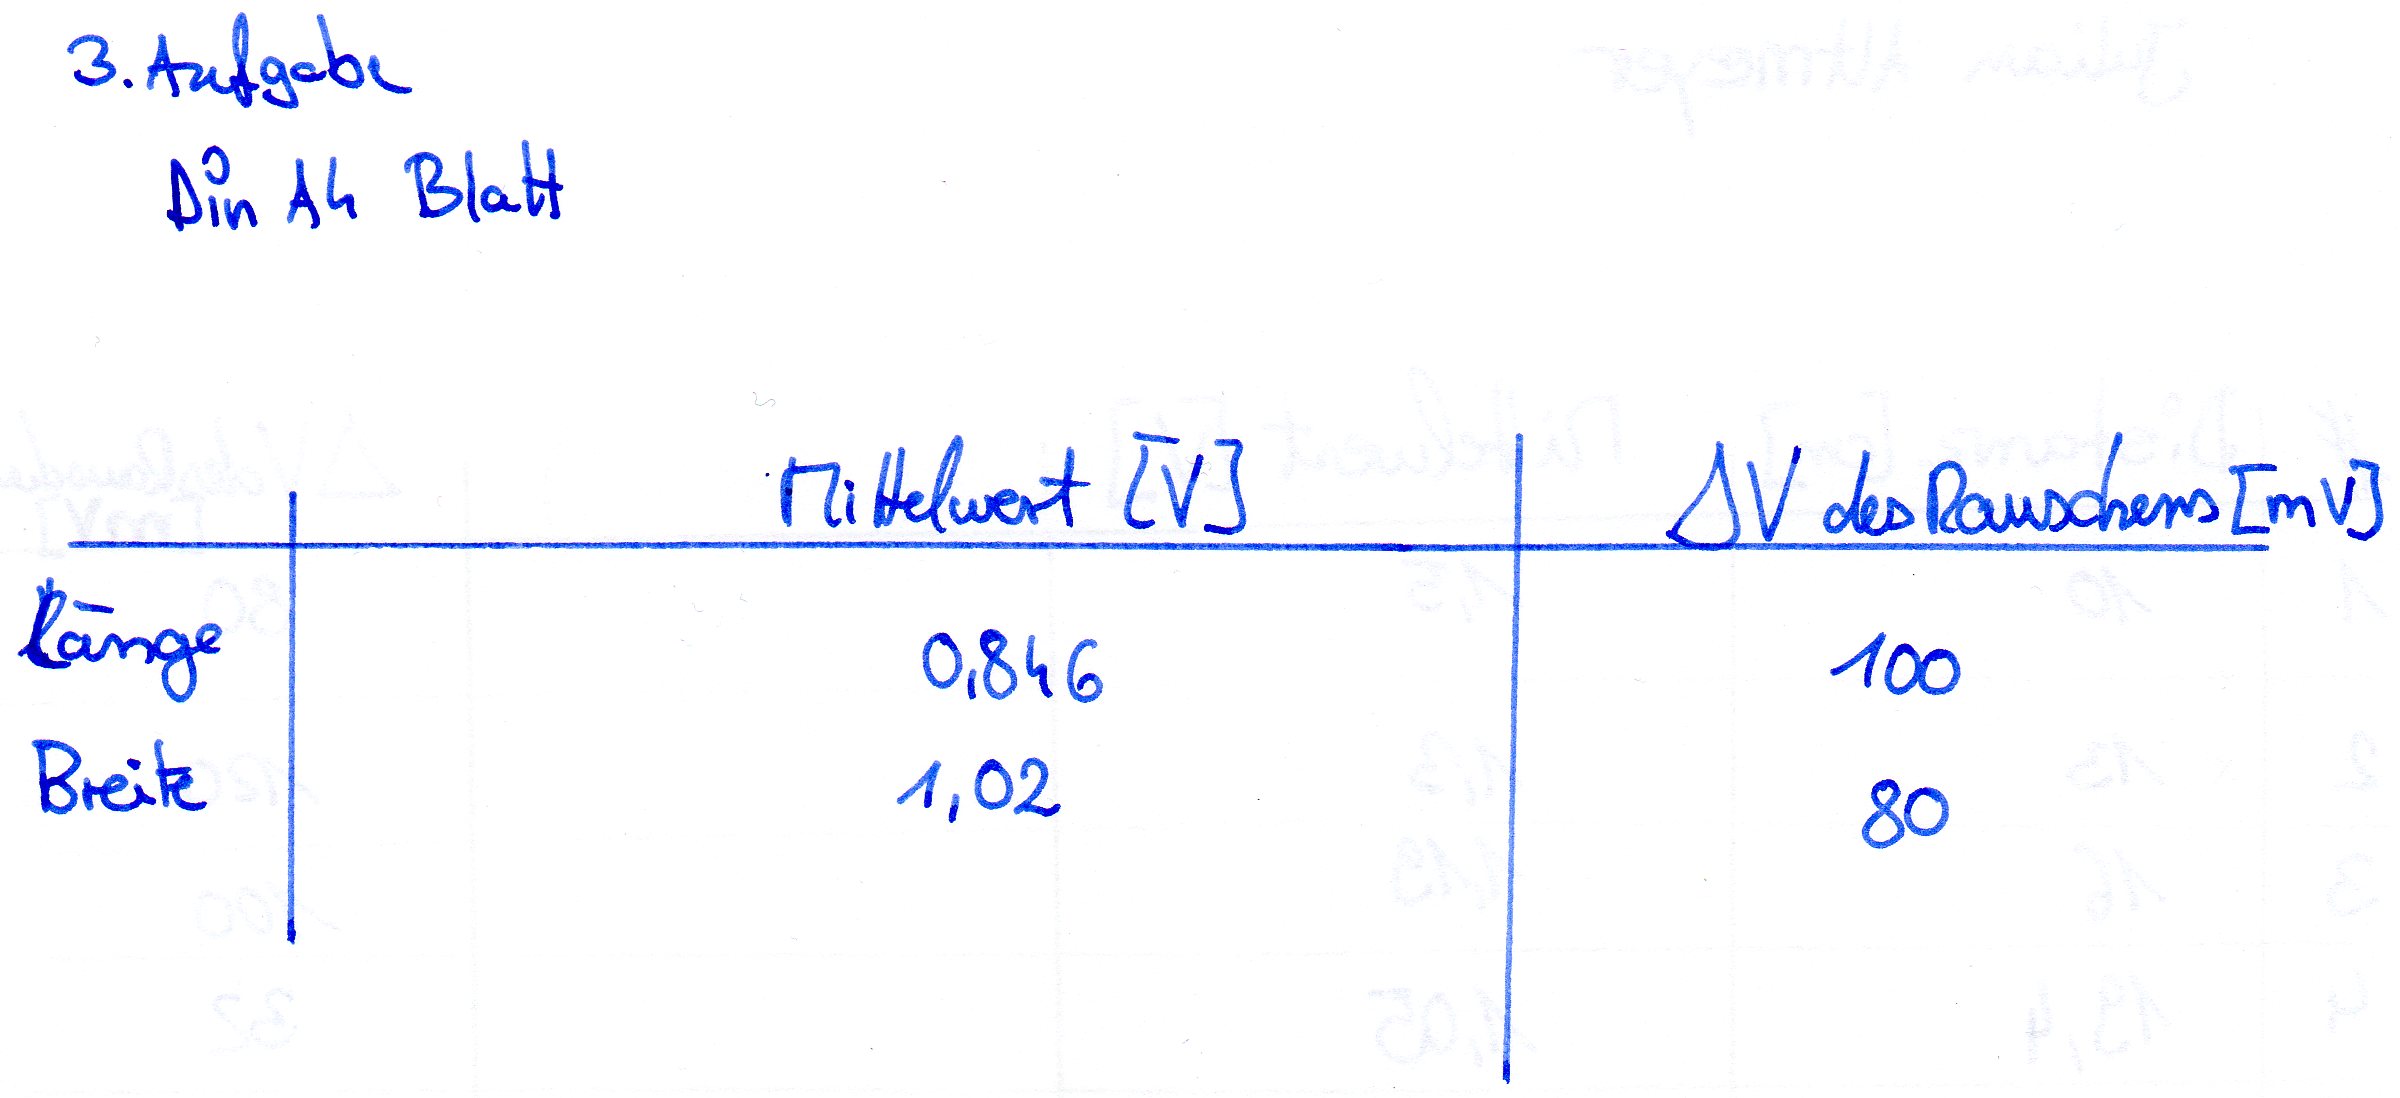 3. Aufgabe
Din A4 Blatt
Mittelwert [V] ΔV des Rauschens [mV]
Länge 0,846 100
Breite 1,02 80